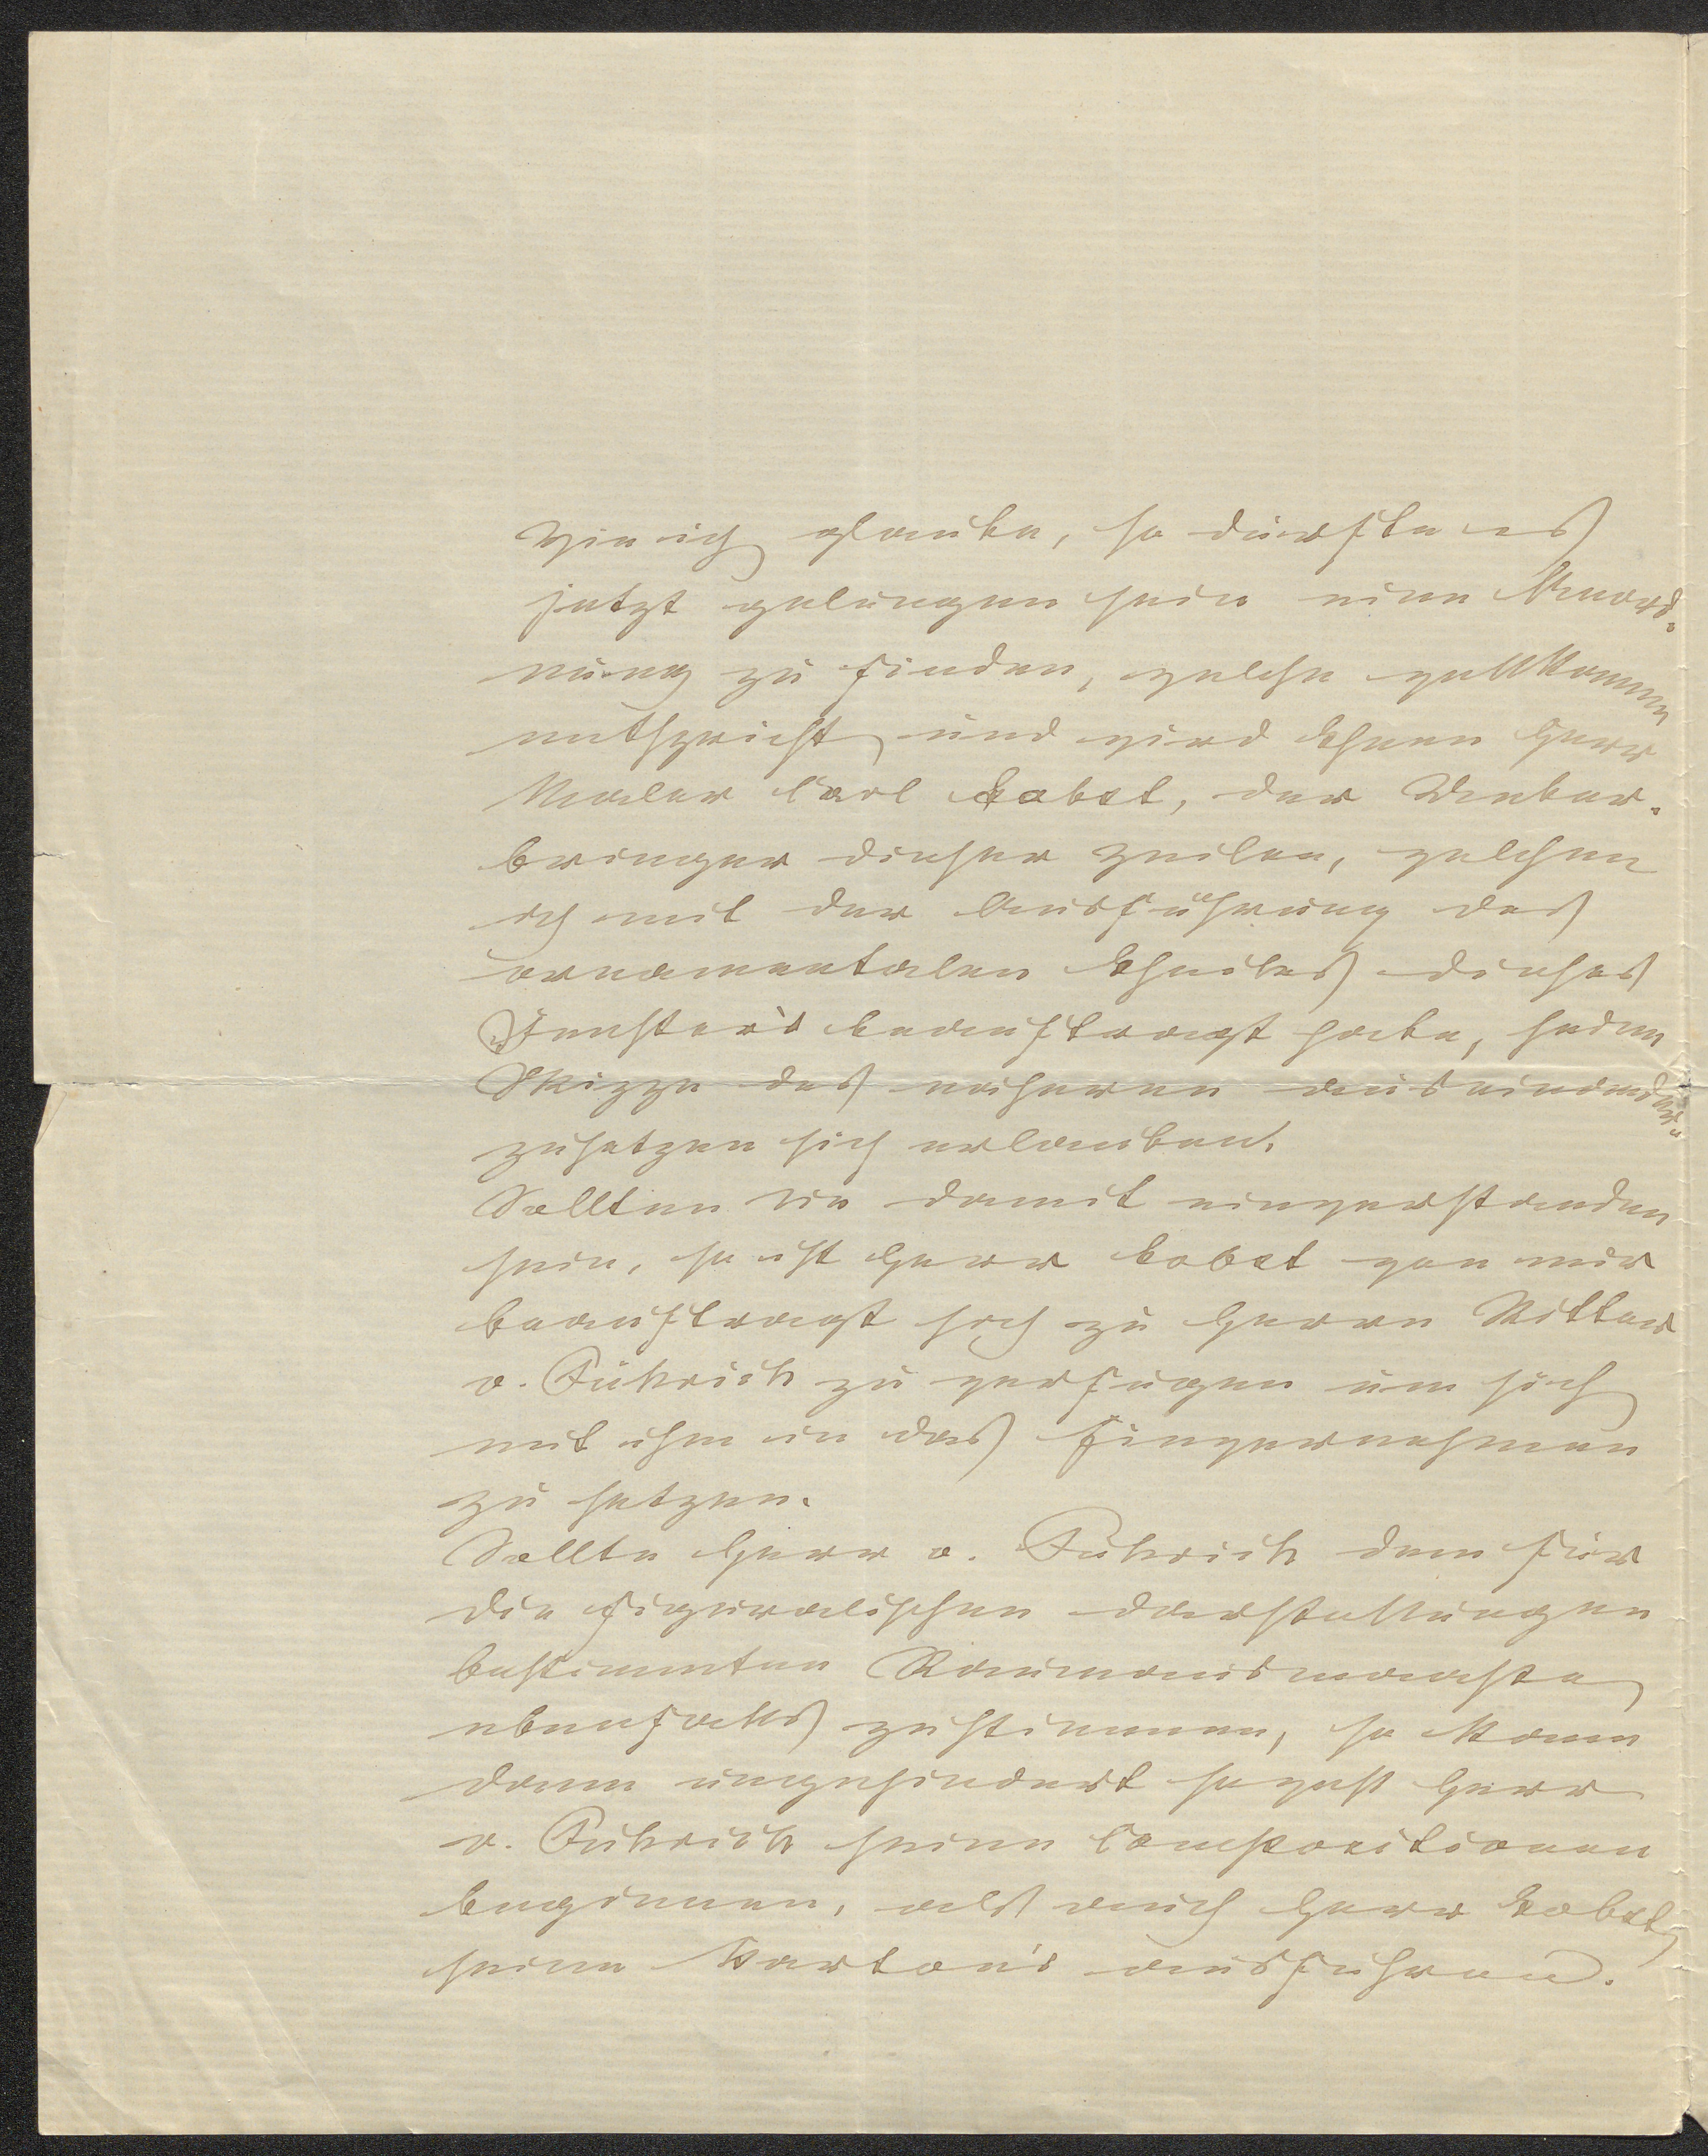 Wie ich glaube, so dürfte es
jetzt gelungen sein eine Anord-
nung zu finden, welche vollkommen
entspricht, und wird Ihnen Herr
Maler Carl Jobst, der Ueber-
bringer dieser Zeilen, welchen
ich mit der Ausführung des
ornamentalen Theiles dieses
Fenster's beauftragt habe, jeden
Skizze des näheren auseinander-
zusetzen sich erlauben.
Sollten Sie damit einverstanden
sein, so ist Herr Jobst von mir
beauftragt sich zu Herrn Ritter
v. Führich zu verfügen um sich
mit ihm in das Einvernehmen
zu setzen.
Sollte Herr v. Führich dem für
die figuralischen Darstellungen
bestimmten Raumausmaaße
ebenfalls zustimmen, so kann
dann ungehindert sowohl Herr
v. Führich seine Compositionen
beginnen, als auch Herr Jobst
seine Karton's ausführen.